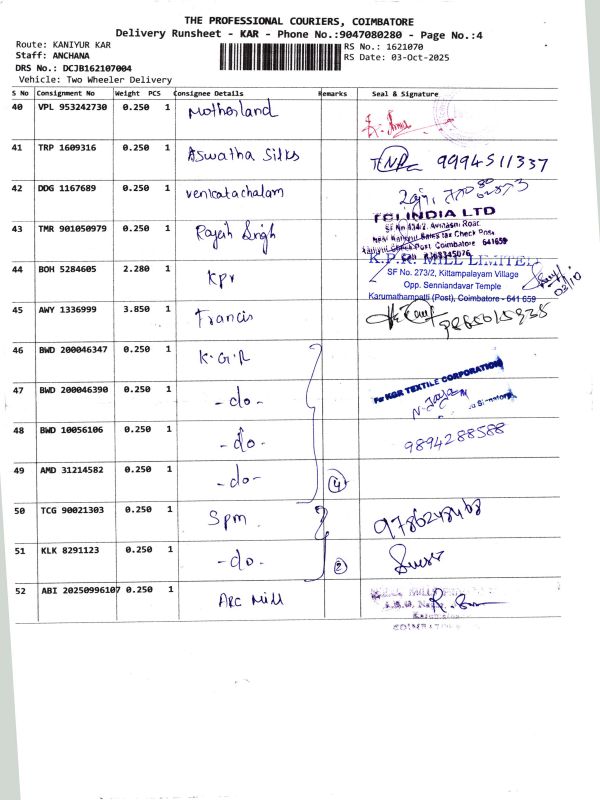 THE PROFESSIONAL COURIERS, COIMBATORE
Delivery Runsheet - KAR - Phone No.:9047080280 - Page No.:4
Route: KANIYUR KAR
Staff: ANCHANA
DRS No.: DCJB162107004
Vehicle: Two Wheeler Delivery
RS No.: 1621070
RS Date: 03-Oct-2025
S No Consignment No Weight PCS Consignee Details Remarks Seal & Signature
40 VPL 953242730 0.250 1 Motherland
41 TRP 1609316 0.250 1 Aswatha Silks 9994511337
42 DDG 1167689 0.250 1 venkatachalam
43 TMR 901050979 0.250 1 Rajesh Singh
TCI INDIA LTD
44 BOH 5284605 2.280 1 KPR
K.P.R. MILL LIMITED
SF No. 273/2, Kittampalayam Village
Opp. Senniandavar Temple
Karumathampatti (Post), Coimbatore - 641 659
03/10
45 AWY 1336999 3.850 1 Francis
46 BWD 200046347 0.250 1 K.G.R
47 BWD 200046390 0.250 1 -do-
For KGR TEXTILE CORPORATION
48 BWD 10056106 0.250 1 -do-
9894288588
49 AMD 31214582 0.250 1 -do- 4
50 TCG 90021303 0.250 1 SPM
51 KLK 8291123 0.250 1 -do- 2
52 ABI 20250996107 0.250 1 ARC Mill